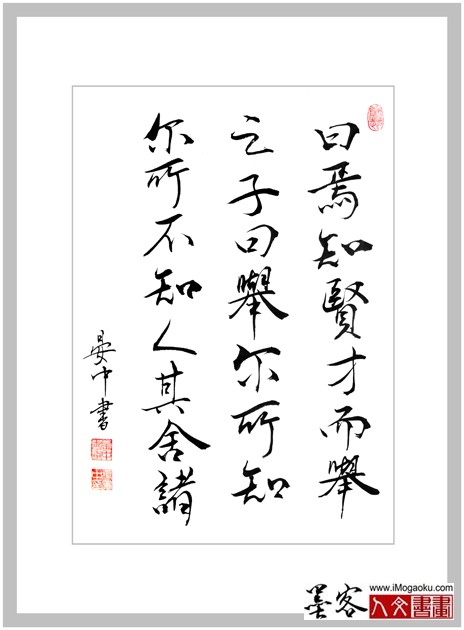 曰焉知賢才而舉
之子曰舉尔所知
尔所不知人其舍諸
晏中書
墨客
www.iMogaoku.com
人文書畫